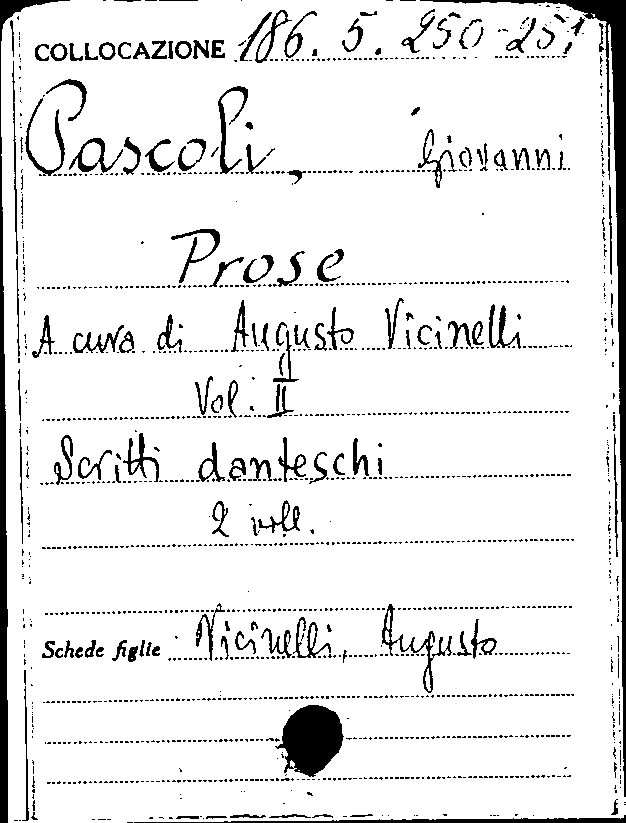 COLLOCAZIONE 186. 5. 250-251
Pascoli, Giovanni
Prose
A cura di Augusto Vicinelli
Vol. II
Scritti danteschi
2 voll.
Schede figlie Vicinelli, Augusto